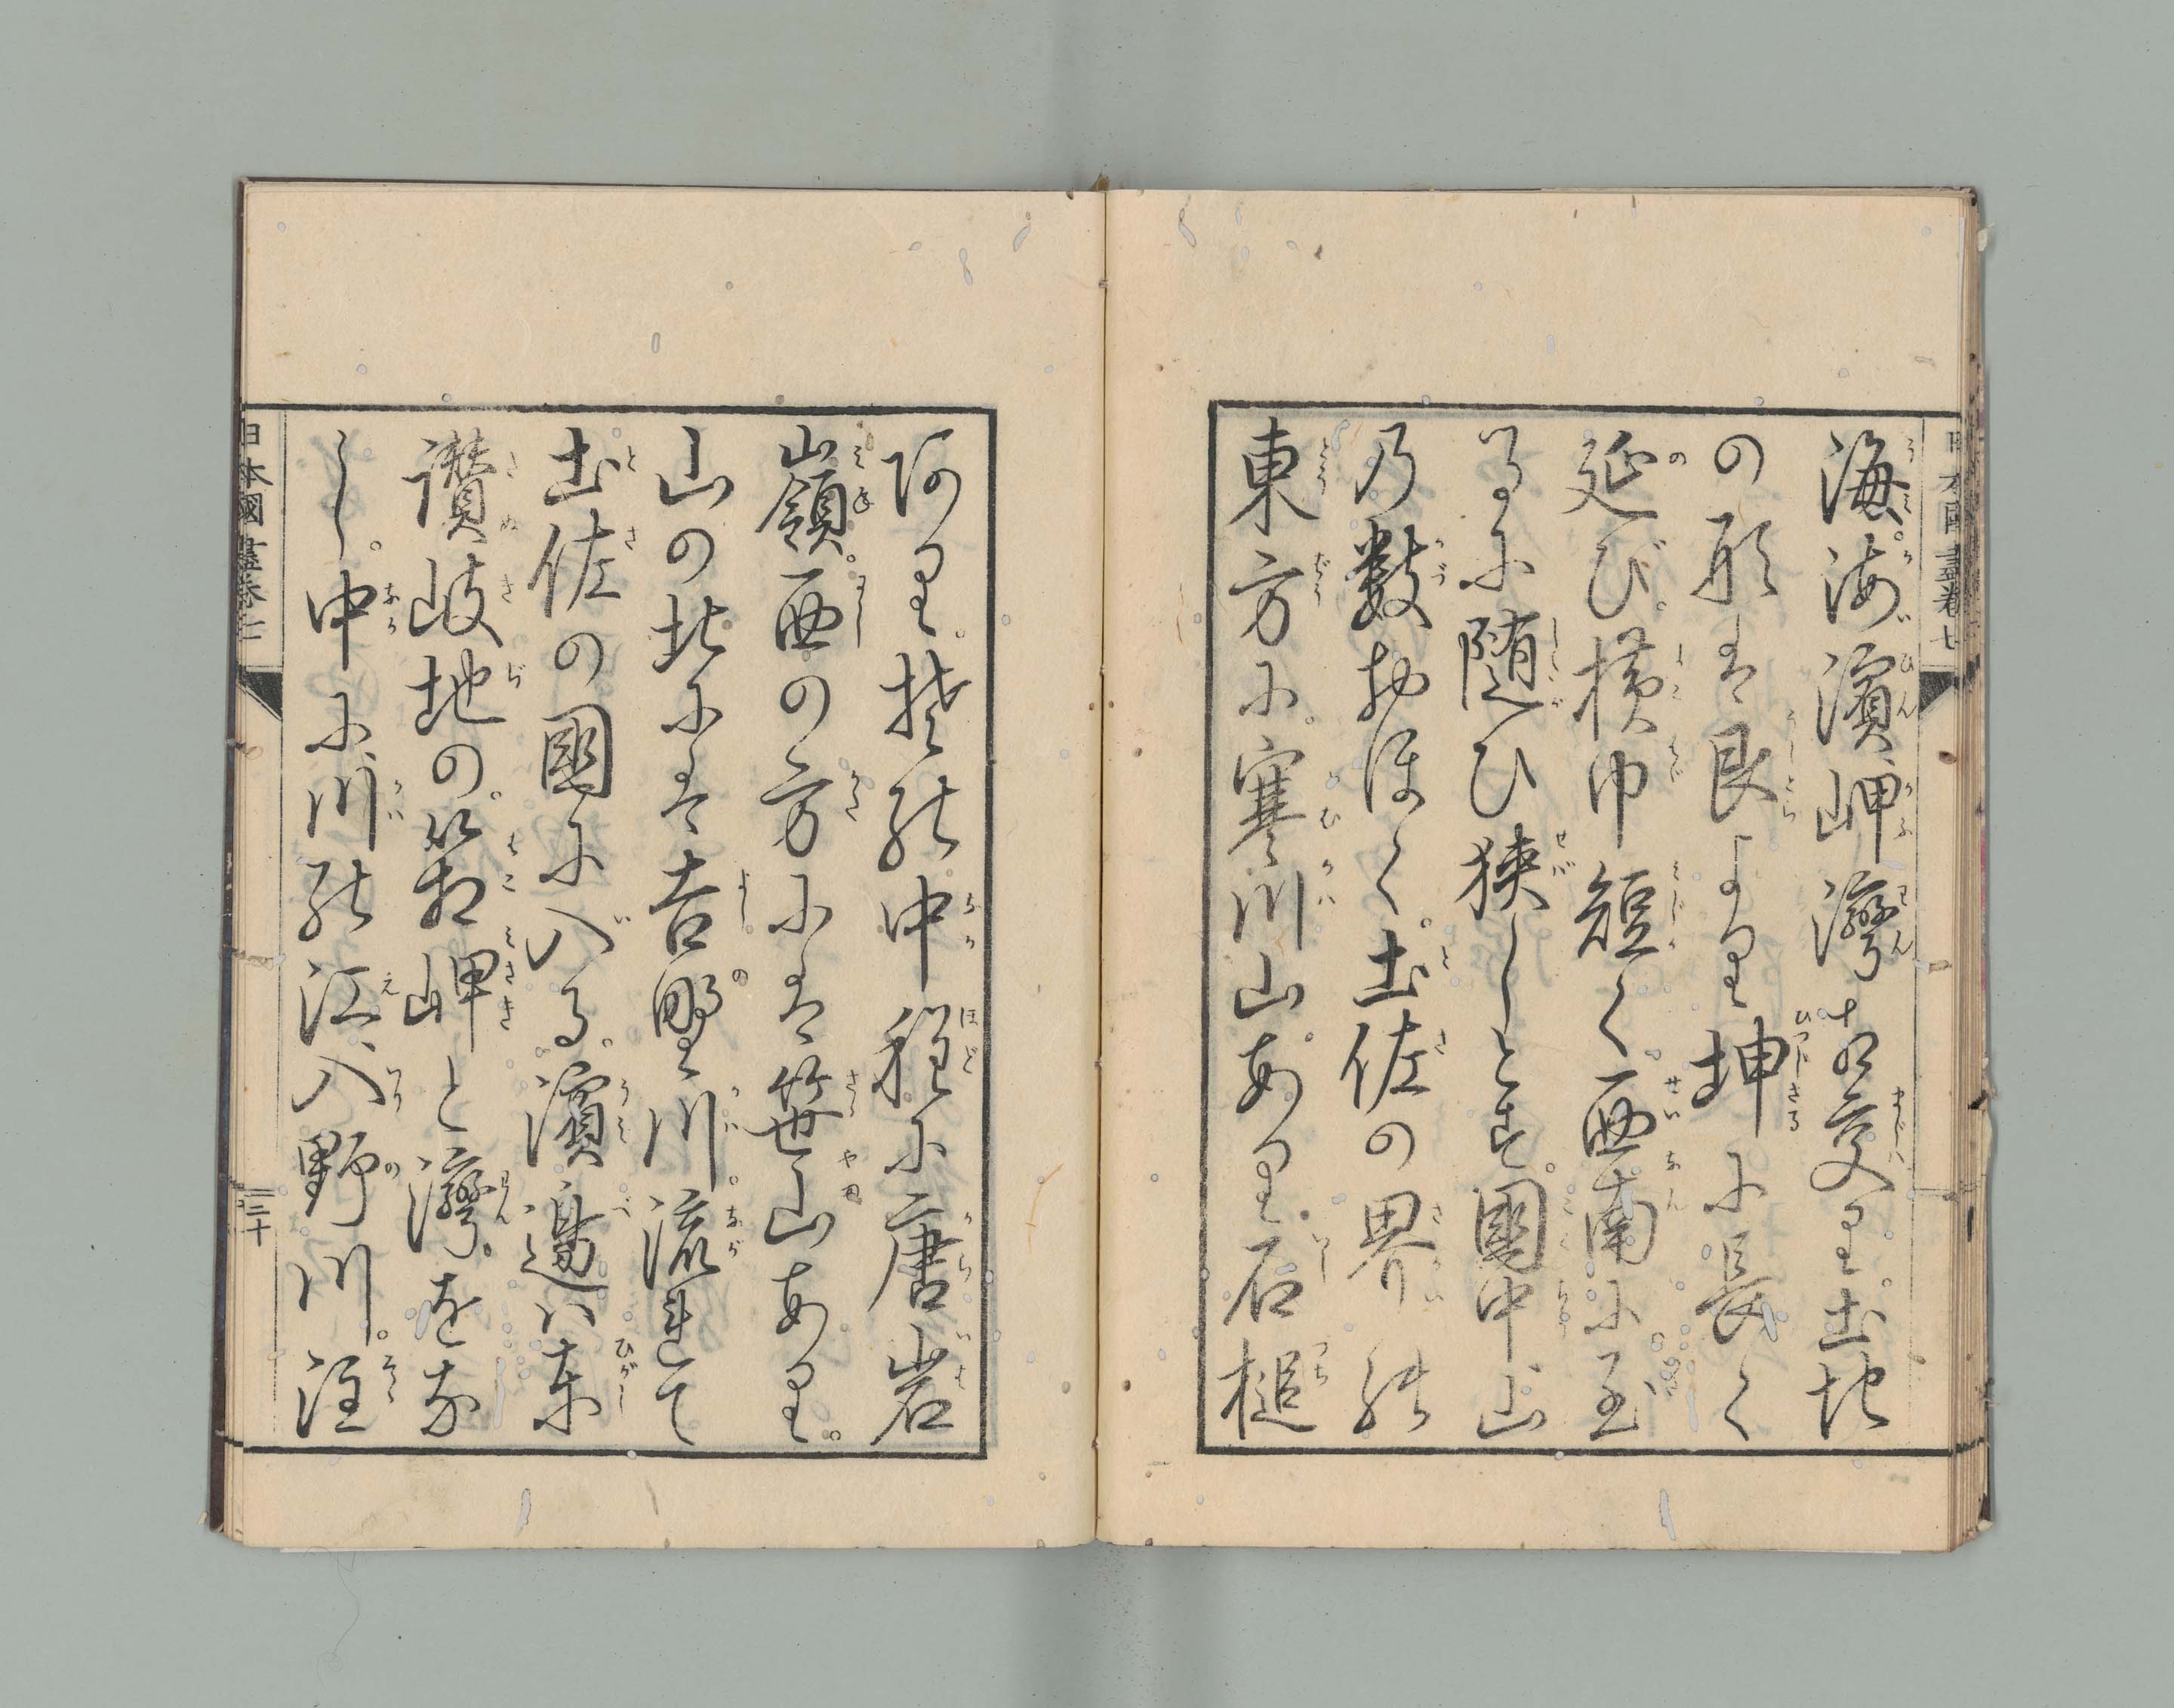 海。海濱岬灣相交り。土地
の形は艮より坤に長く
延び。横巾短く西南に至
るに随ひ狭しとす。國中山
乃數おほく。土佐の界能
東方に。寒川山あり。石槌
阿り。其能中程に唐岩
山嶺。西の方には笹山あり。
山の北には吉野川。流れて
土佐の國に入る。濱邉ハ東
讃岐地の。箱岬と灣をな
し。中に川能江入野川。注
日本國盡卷七
三十